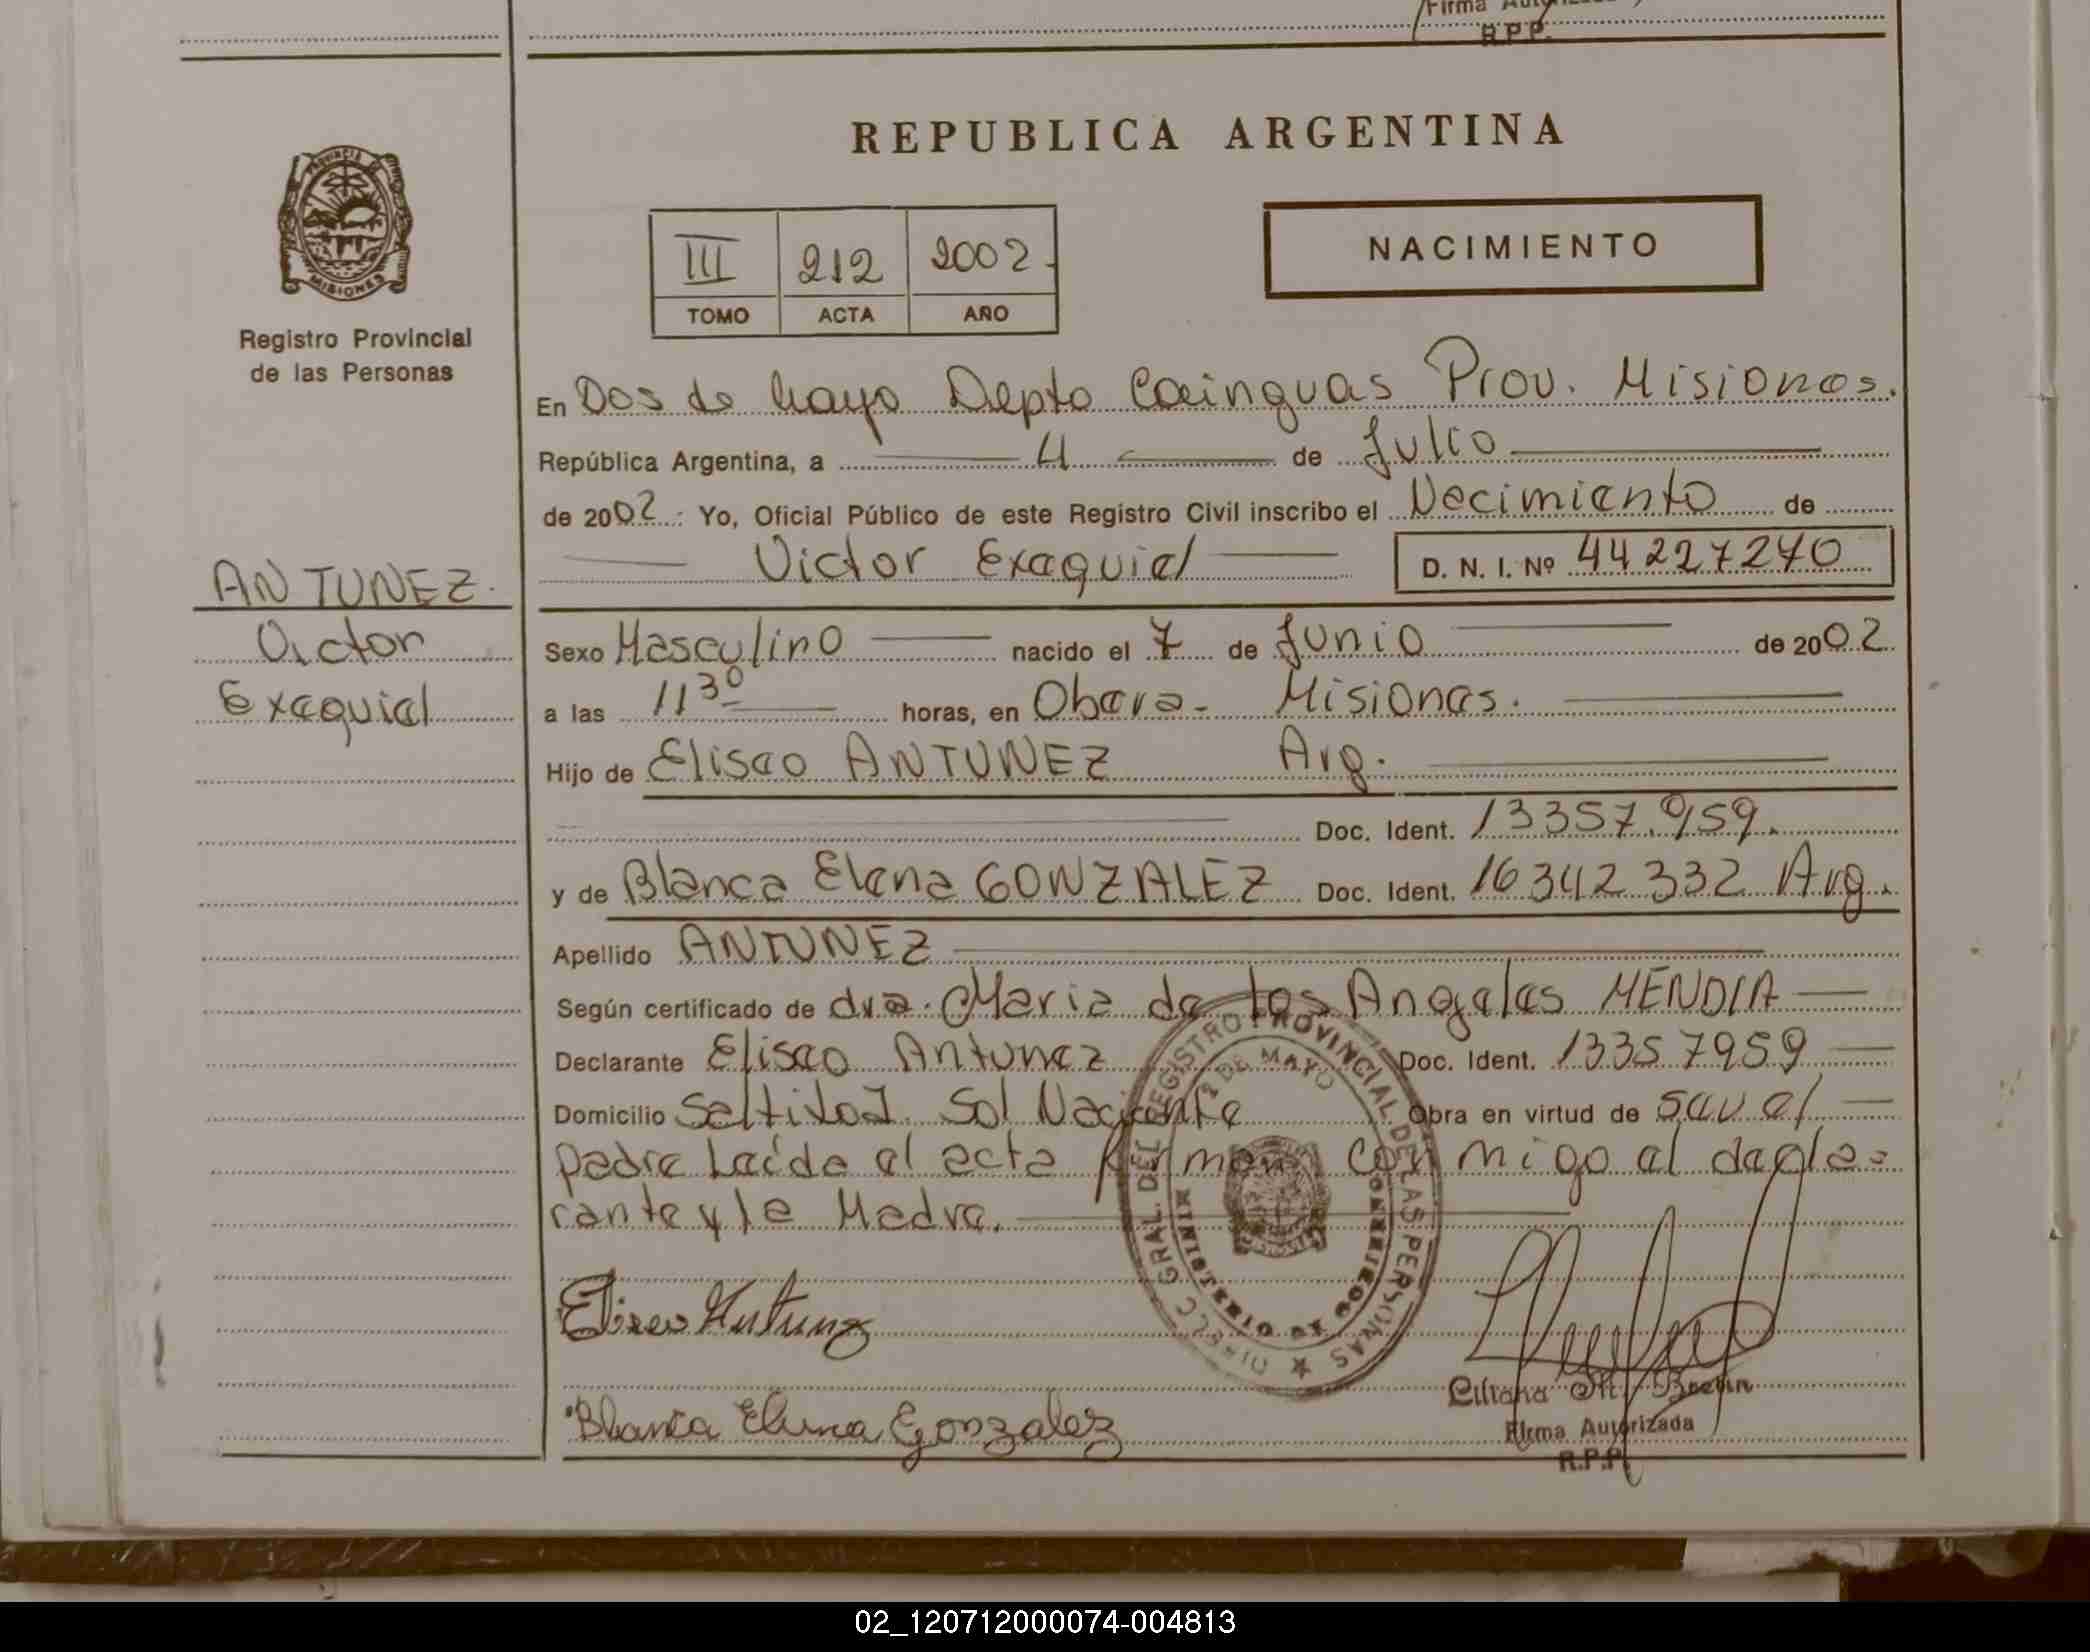 Firma
R.P.P.
PROVINCIA DE
MISIONES
Registro Provincial
de las Personas
REPUBLICA ARGENTINA
III 212 2002
TOMO ACTA AÑO
NACIMIENTO
En Dos de Mayo Depto Cainguas Prov. Misiones.
República Argentina, a 4 de Julio
de 2002 Yo, Oficial Público de este Registro Civil inscribo el Necimiento de
Victor Exequiel D. N. I. Nº 44227270
ANTUNEZ
Victor
Exequiel
Sexo Masculino nacido el 7 de Junio de 2002
a las 11 30 horas, en Obera - Misiones.
Hijo de Eliseo ANTUNEZ Arg.
Doc. Ident. 13357.959.
y de Blanca Elena GONZALEZ Doc. Ident. 16342332 Arg.
Apellido ANTUNEZ
Según certificado de dra. Maria de los Angeles MENDIA
Declarante Eliseo Antunez Doc. Ident. 13357959
Domicilio Saltito I Sol Naciente Obra en virtud de ser el
padre Leída el acta firman con migo el decla-
rante y la Madre.
DIRECC GRAL. DEL REGISTRO PROVINCIAL DE LAS PERSONAS
DE MAYO
MINISTERIO DE GOBIERNO
Eliseo Antunez
Blanca Elena Gonzalez
Liliana
Firma Autorizada
R.P.P.
02_120712000074-004813